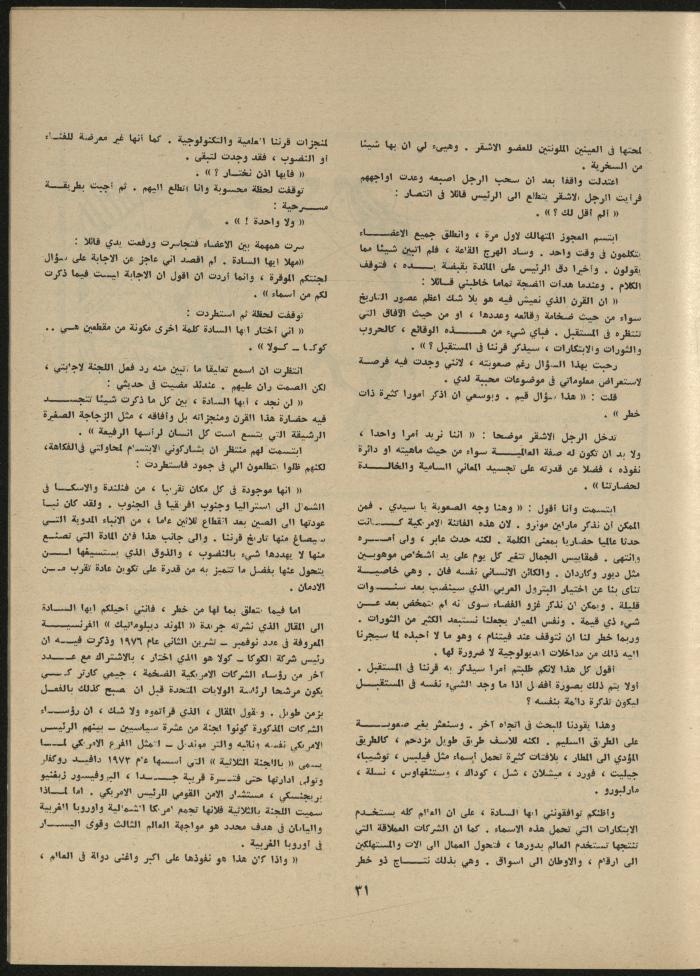 لمحتها في العينين الملونتين للعضو الاشقر . وهيىء لي ان بها شيئا
من السخرية .
اعتدلت واقفا بعد ان سحب الرجل اصبعه وعدت اواجههم
فرأيت الرجل الاشقر يتطلع الى الرئيس قائلا في انتصار :
« ألم أقل لك ؟ » .
ابتسم العجوز المتهالك لاول مرة ، وانطلق جميع الاعضاء
يتكلمون في وقت واحد . وساد الهرج القاعة ، فلم اتبين شيئا مما
يقولون . وأخيرا دق الرئيس على المائدة بقبضة يده ، فتوقف
الكلام . وعندما هدأت الضجة تماما خاطبني قائلا :
« ان القرن الذي نعيش فيه هو بلا شك اعظم عصور التاريخ
سواء من حيث ضخامة وقائعه وعددها ، او من حيث الآفاق التي
تنتظره في المستقبل . فبأي شيء من هذه الوقائع ، كالحروب
والثورات والابتكارات ، سيذكر قرننا في المستقبل ؟ » .
رحبت بهذا السؤال رغم صعوبته ، لانني وجدت فيه فرصة
لاستعراض معلوماتي في موضوعات محببة لدي .
قلت : « هذا سؤال قيم . وبوسعي ان اذكر أمورا كثيرة ذات
خطر » .
تدخل الرجل الاشقر موضحا : « اننا نريد أمرا واحدا ،
ولا بد ان تكون له صفة العالمية سواء من حيث ماهيته او دائرة
نفوذه ، فضلا عن قدرته على تجسيد المعاني السامية والخالدة
لحضارتنا » .
ابتسمت وأنا أقول : « وهنا وجه الصعوبة يا سيدي . فمن
الممكن أن نذكر مارلين مونرو . لان هذه الفاتنة الامريكية كانت
حدثا عالميا حضاريا بمعنى الكلمة . لكنه حدث عابر ، ولى أمره
وانتهى . فمقاييس الجمال تتغير كل يوم على يد اشخاص موهوبين
مثل ديور وكاردان . والكائن الانساني نفسه فان . وهي خاصية
تنأى بنا عن اختيار البترول العربي الذي سينضب بعد سنوات
قليلة . ويمكن ان نذكر غزو الفضاء سوى انه لم يتمخض بعد عن
شيء ذي قيمة . ونفس المعيار يجعلنا نستبعد الكثير من الثورات .
وربما خطر لنا ان نتوقف عند فيتنام ، وهو ما لا أحبذه لما سيجرنا
اليه ذلك من مداخلات ايديولوجية لا ضرورة لها .
أقول كل هذا لانكم طلبتم أمرا سيذكر به قرننا في المستقبل .
أولا يتم ذلك بصورة أفضل اذا ما وجد الشيء نفسه في المستقبل
ليكون تذكرة دائمة بنفسه ؟
وهذا يقودنا للبحث في اتجاه آخر . وسنعثر بغير صعوبة
على الطريق السليم . لكنه للاسف طريق طويل مزدحم ، كالطريق
المؤدي الى المطار ، بلافتات كثيرة تحمل أسماء مثل فيليبس ، توشيبا،
جيليت ، فورد ، ميشلان ، شل ، كوداك ، وستنغهاوس ، نسلة ،
مارلبورو .
واظنكم توافقونني ايها السادة ، على ان العالم كله يستخدم
الابتكارات التي تحمل هذه الاسماء . كما ان الشركات العملاقة التي
تنتجها تستخدم العالم بدورها ، فتحول العمال الى آلات والمستهلكين
الى ارقام ، والاوطان الى اسواق . وهي بذلك نتاج ذو خطر
لمنجزات قرننا العلمية والتكنولوجية . كما أنها غير معرضة للفناء
او النضوب ، فقد وجدت لتبقى .
« فأيها اذن نختار ؟ » .
توقفت لحظة محسوبة وانا اتطلع اليهم . ثم أجبت بطريقة
مسرحية :
« ولا واحدة ! » .
سرت همهمة بين الاعضاء فتجاسرت ورفعت يدي قائلا :
«مهلا ايها السادة . لم اقصد اني عاجز عن الاجابة على سؤال
لجنتكم الموقرة ، وانما أردت ان اقول ان الاجابة ليست فيما ذكرت
لكم من أسماء » .
توقفت لحظة ثم استطردت :
« اني أختار ايها السادة كلمة اخرى مكونة من مقطعين هي ..
كوكا ــ كولا » .
انتظرت ان اسمع تعليقا ما اتبين منه رد فعل اللجنة لاجابتي ،
لكن الصمت ران عليهم . عندئذ مضيت في حديثي :
« لن نجد ، أيها السادة ، بين كل ما ذكرت شيئا تتجسد
فيه حضارة هذا القرن ومنجزاته بل وآفاقه ، مثل الزجاجة الصغيرة
الرشيقة التي يتسع است كل انسان لرأسها الرفيعة » .
ابتسمت لهم منتظر ان يشاركوني الابتسام لمحاولتي في الفكاهة،
لكنهم ظلوا يتطلعون الي في جمود فاستطردت :
« انها موجودة في كل مكان تقريبا ، من فنلندة والاسكا في
الشمال الى استراليا وجنوب افريقيا في الجنوب . ولقد كان نبأ
عودتها الى الصين بعد انقطاع ثلاثين عاما ، من الانباء المدوية التي
سيصاغ منها تاريخ قرننا . والى جانب هذا فان المادة التي تصنع
منها لا يهددها شيء بالنضوب ، والذوق الذي يستسيغها لن
يتحول عنها بفضل ما تتميز به من قدرة على تكوين عادة تقرب من
الادمان .
اما فيما يتعلق بما لها من خطر ، فانني أحيلكم ايها السادة
الى المقال الذي نشرته جريدة « الموند ديبلوماتيك » الفرنسية
المعروفة في عدد نوفمبر ــ تشرين الثاني عام ١٩٧٦ وذكرت فيه ان
رئيس شركة الكوكا ــ كولا هو الذي اختار ، بالاشتراك مع عدد
آخر من رؤساء الشركات الامريكية الضخمة ، جيمي كارتر كي
يكون مرشحا لرئاسة الولايات المتحدة قبل ان يصبح كذلك بالفعل
بزمن طويل . ويقول المقال ، الذي قرأتموه ولا شك ، ان رؤساء
الشركات المذكورة كونوا لجنة من عشرة سياسيين ــ بينهم الرئيس
الامريكي نفسه ونائبه والتر مونديل ــ لتمثل الفرع الامريكي لما
يسمى « باللجنة الثلاثية » التي أسسها عام ١٩٧٣ دافيد روكفلر
وتولى ادارتها حتى فترة قريبة جدا ، البروفيسور زبغنيو
بريجنسكي ، مستشار الامن القومي للرئيس الامريكي . اما لماذا
سميت اللجنة بالثلاثية فلانها تجمع امريكا الشمالية واوروبا الغربية
واليابان في هدف محدد هو مواجهة العالم الثالث وقوى اليسار
في أوروبا الغربية .
« واذا كان هذا هو نفوذها على اكبر واغنى دولة في العالم ،
٣١